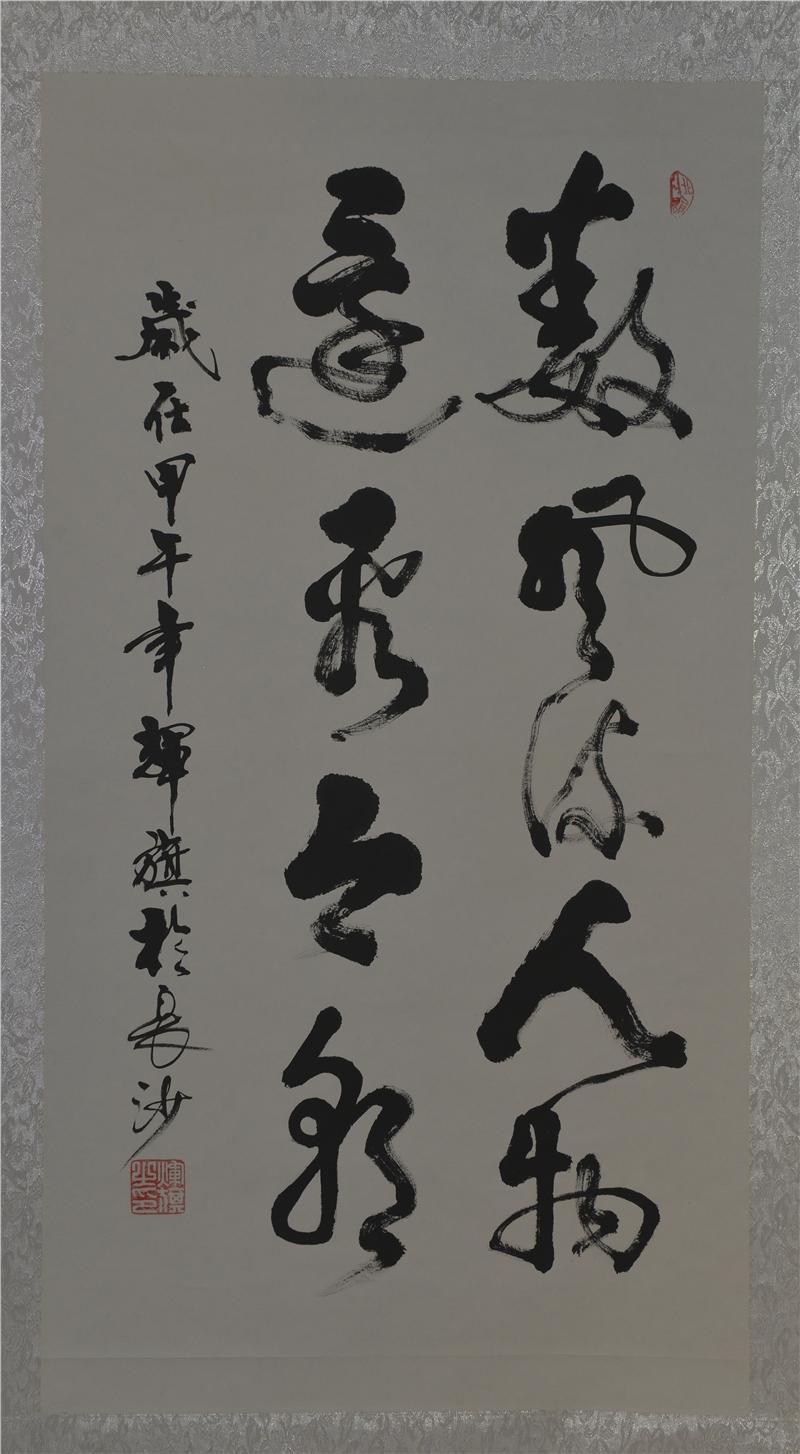 數風流人物
還看今朝
歲在甲午年輝旗於長沙